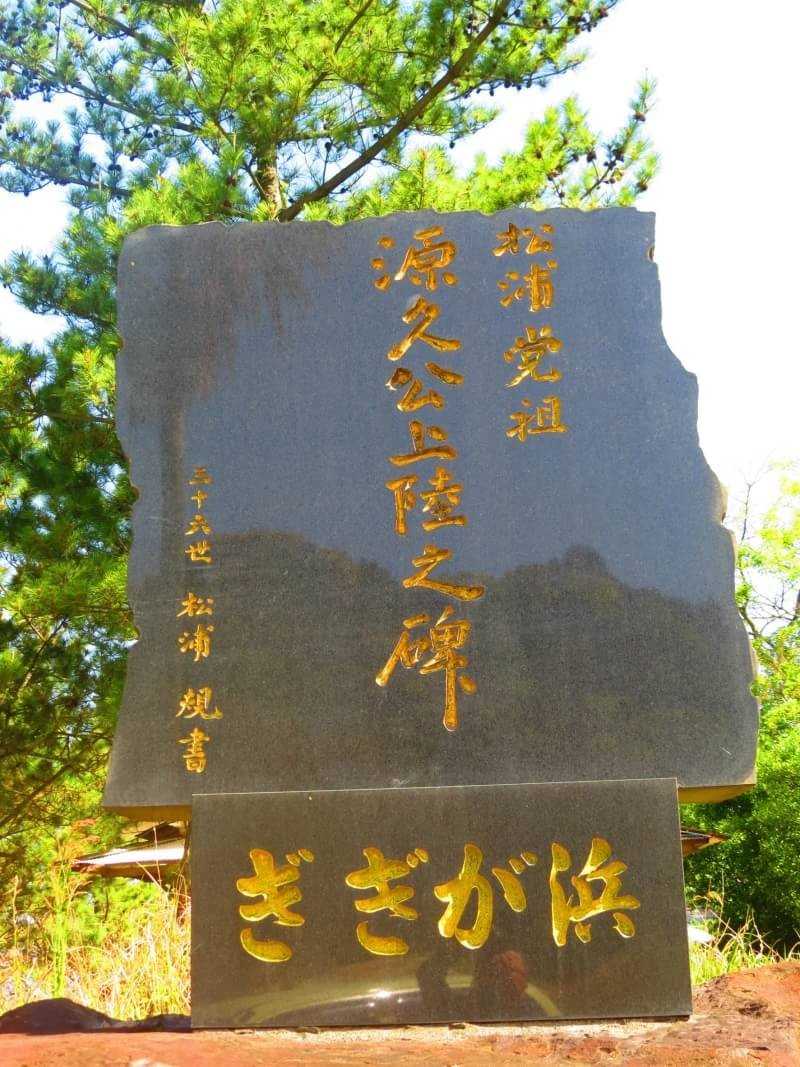 松浦党祖
源久公上陸之碑
三十六世 松浦 䂓書
ぎぎが浜